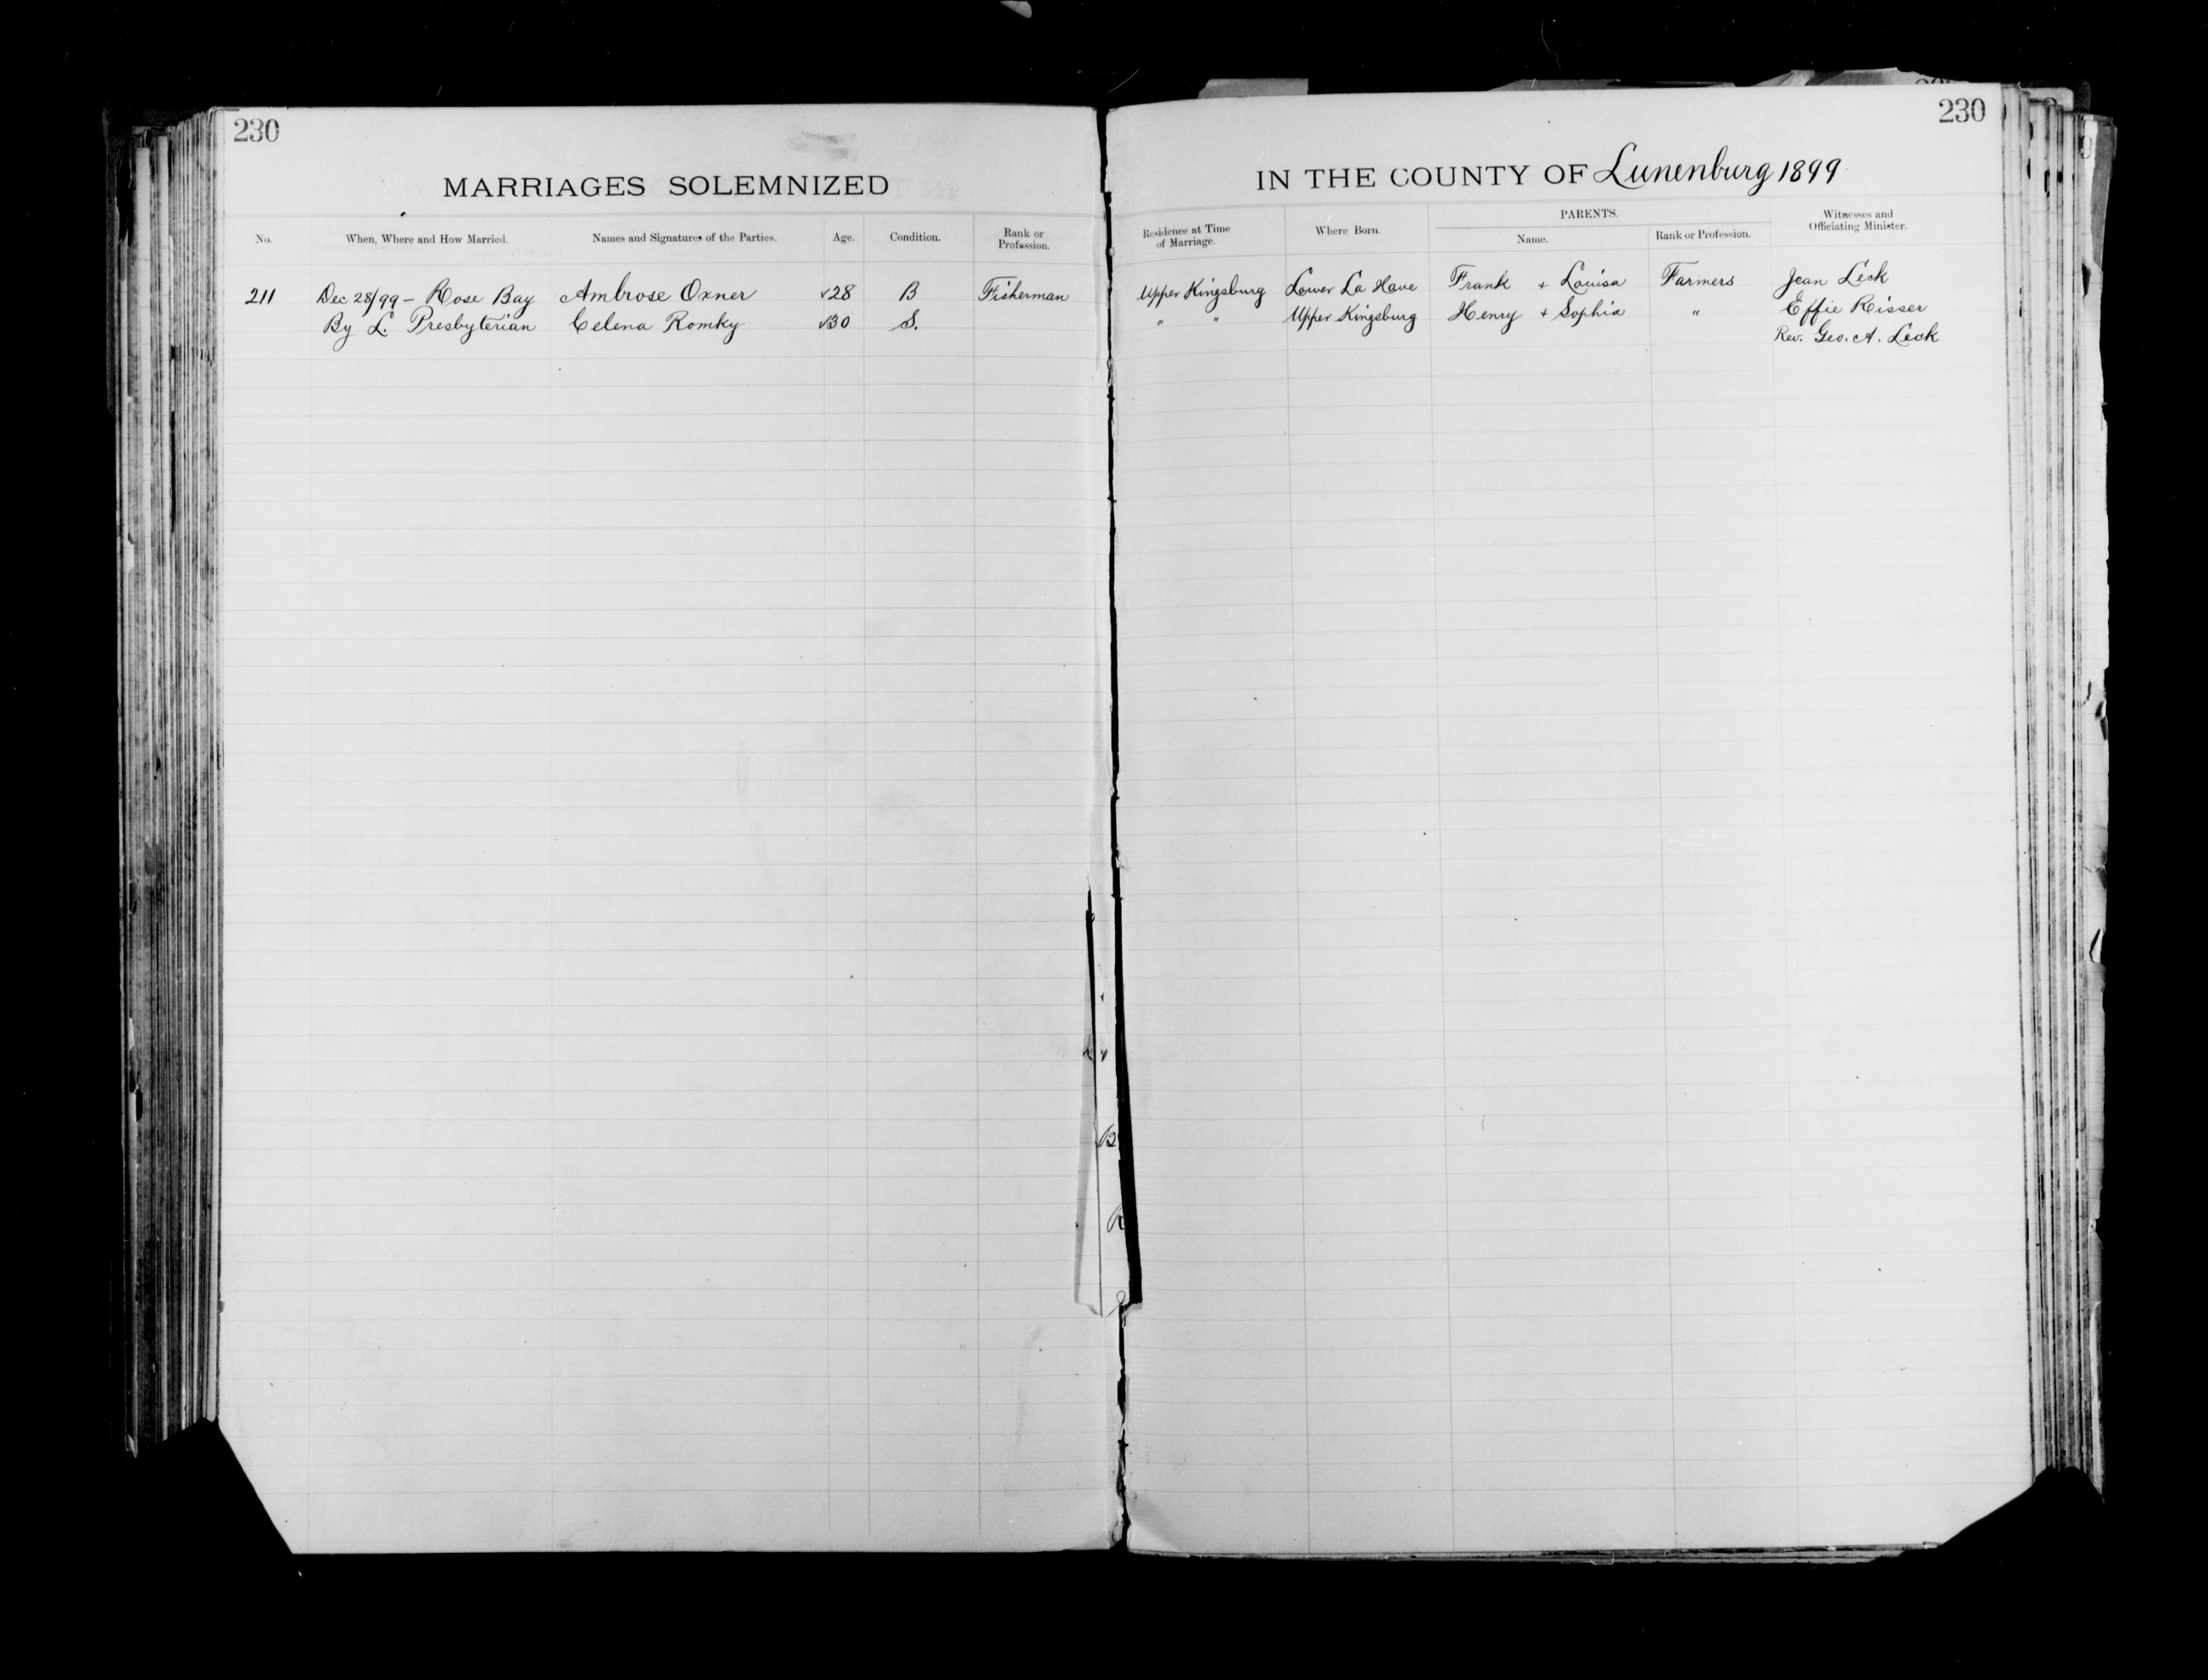 230
230
MARRIAGES SOLEMNIZED
IN THE COUNTY OF Lunenburg 1899
No. When, Where and How Married. Names and Signatures of the Parties. Age. Condition. Rank or Profession. Residence at Time of Marriage. Where Born. PARENTS. Name. Rank or Profession. Witnesses and Officiating Minister.
211 Dec 28/99 - Rose Bay Ambrose Oxner √28 B Fisherman Upper Kingsburg Lower La Have Frank + Louisa Farmers Jean Leck
By L. Presbyterian Celena Romky √30 S. " " Upper Kingsburg Henry + Sophia " Effie Risser
Rev. Geo. A. Leck